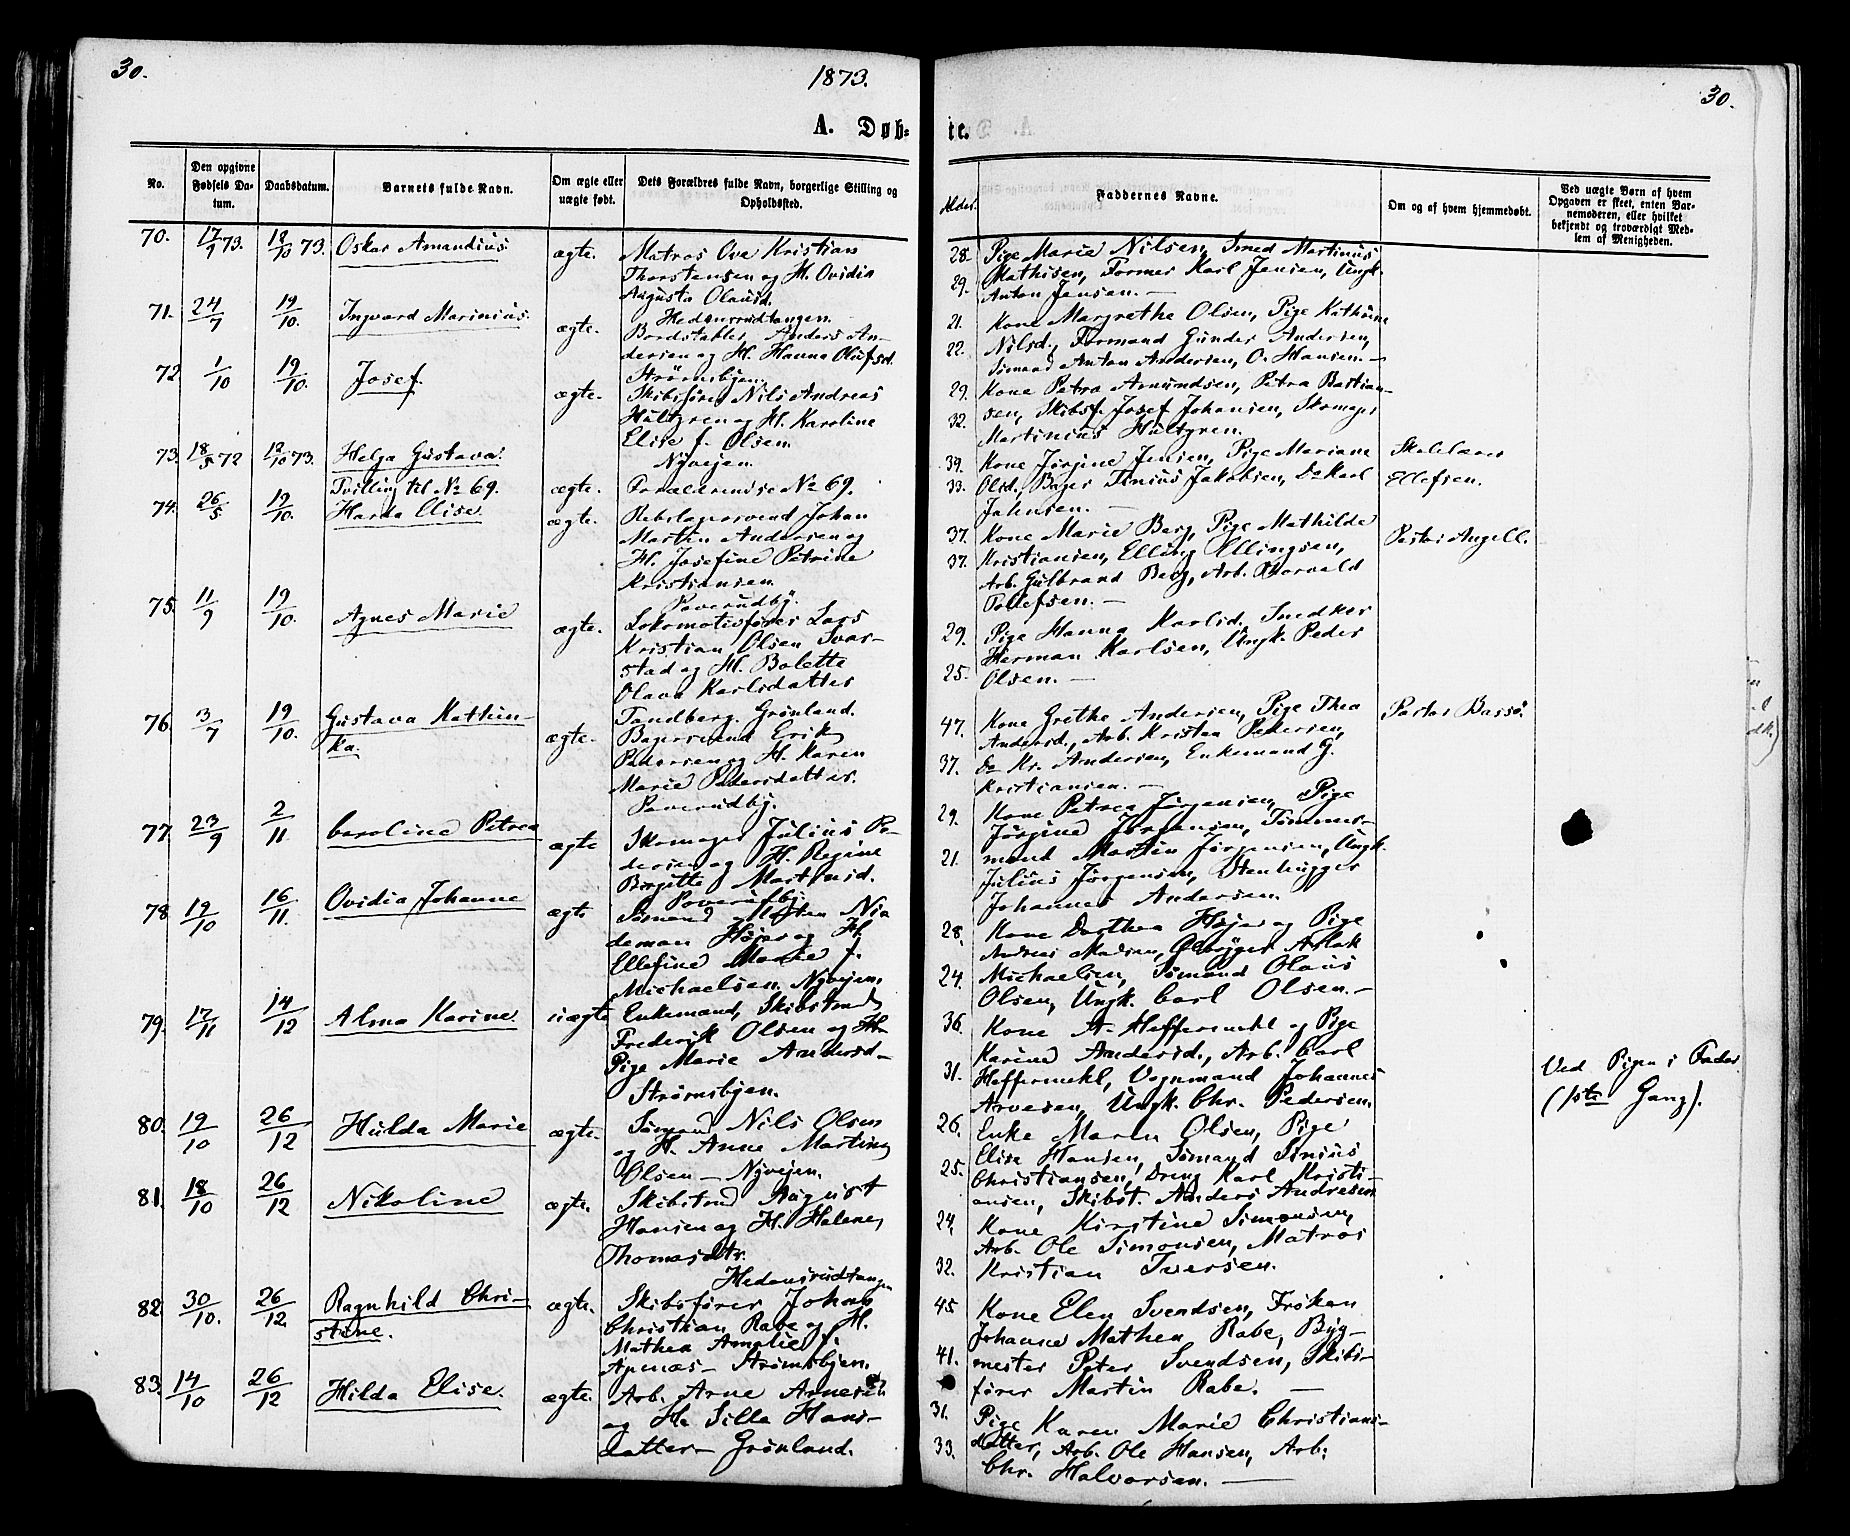 30.
1873.
A. Døb-
No.
Den opgivne Fødsels Da-tum.
Daabsdatum.
Barnets fulde Navn.
Om ægte eller uægte født.
Dets Forældres fulde Navn, borgerlige Stilling og Opholdssted.
70. 17/9 73. 12/10 73. Oskar Amandius. ægte. Matros Ove Kristian
Thorstensen og H. Ovidia
Augusta Olausd.
Hedensrudtangen.
71. 24/7 19/10. Ingvard Marinius. ægte. Bordstabler Anders An-
dersen og H. Hanna Olufsd.
Strømsbjen.
72 1/10 19/10. Josef. ægte. Skibsfører Nils Andreas
Hultgren og H. Karoline
Elise f. Olsen.
Nyvejen.
73. 18/5 72 12/10 73. Helga Gustava.
Tvilling til No 69. ægte. Forældrene se No 69.
74. 26/5 19/10. Harda Elise. ægte. Rebslagersvend Johan
Martin Andersen og
H. Josefine Petrine
Kristiansen.
Poverudby.
75. 11/9 19/10. Agnes Marie ægte. Lokomotivfører Lars
Kristian Olsen Svar-
stad og H. Bolette
Olava Karlsdatter
Tandberg. Grønland.
76. 3/7 19/10. Gustava Kathin-
ka. ægte. Bagersvend Erik
Pedersen og H. Karen
Marie Pedersdatter.
Poverudby.
77. 23/9 2/11. Caroline Petrea ægte Skomager Julius Pe-
dersen og H. Regine
Birgitte Martinsd.
Poverudby.
78 19/10 16/11. Ovidia Johanne ægte Sømand Morten Nia
deman Højer og H.
Ellefine Marie f.
Michaelsen. Nyvejen.
79. 17/11 14/12 Alma Karine uægte Enkemand, Skibstmd
Frederik Olsen og
Pige Marie Andersd-
Strømsbjen.
80. 19/10 26/12 Hulda Marie ægte. Sømand Nils Olsen
og H. Anne Martine
Olsen - Nyvejen.
81. 18/10 26/12 Nikoline ægte. Skibstmd August
Hansen og H. Helene
Thomasdtr.
Hedensrudtangen
82. 30/10. 26/12. Ragnhild Chri-
stine. ægte. Skibsfører Johan
Christian Rabe og H.
Mathea Amalie f.
Apenæs - Strømsbjen.
83. 14/10 26/12 Hilda Elise. ægte. Arb. Arne Arnesen
og H. Silla Hans-
datter - Grønland.
30.
te.
Alder.
Faddernes Navne.
Om og af hvem hjemmedøbt.
Ved uægte Børn af hvem Opgaven er skeet, enten Bar-nemoderen, eller hvilket bekjendt og troværdigt Med-lem af Menigheden.
28. Pige Marie Nilsen, Smed Martinius
29. Mathisen, Former Karl Jensen, Ungk.
Anton Jensen. —
21. Kone Margrethe Olsen, Pige Kathinne
22. Nilsd., Formand Gunder Andersen,
Sømand Anton Andersen, O. Hansen. —
29. Kone Petra Amundsen, Petra Bastian-
32. sen, Skibsf. Josef Johansen, Skomager
Martinius Hultgren.
39. Kone Jørgine Jensen, Pige Mariane Skolelærer
33. Olsd., Bager Tinius Jakobsen, Do Karl Ellefsen.
Jahnsen. —
37. Kone Marie Berg, Pige Mathilde Pastor Angell.
37. Kristiansen, Elling Ellingsen,
Arb. Gulbrand Berg, Arb. Thorvald
Tollefsen. —
29. Pige Hanna Karlsd., Snedker
Herman Karlsen, Ungk. Peder
25. Olsen. —
47. Kone Grethe Andersen, Pige Thea Pastor Bassø.
Andersd., Arb. Kristen Pedersen,
37. Do Kr. Andersen, Enkemand G.
Kristiansen. —
29. Kone Petrea Jørgensen, Pige
Jørgine Jørgensen, Tømmer-
21. mand Martin Jørgensen, Ungk.
Julius Jørgensen, Stenhugger
Johannes Andersen.
28. Kone Dorthea Højer og Pige
Andrea Madsen, Ølbrygger Aslak
24. Michaelsen, Sømand Olaus
Olsen, Ungk. Carl Olsen. —
36. Kone A. Heffermehl og Pige
Karine Andersd., Arb. Carl
31. Heffermehl, Vognmand Johannes
Arvesen, Ungk. Chr. Pedersen.
Ved Pigens Fader
(1ste Gang).
26. Enke Maren Olsen, Pige
Elise Hansen, Sømand Sinius
25. Christiansen, Dreng Karl Kristi-
ansen, Skibst. Anders Andresen
24, Kone Kirstine Simonsen,
Arb. Ole Simonsen, Matros
32. Kristian Iversen.
45 Kone Elen Svendsen, Frøken
Johanne Mathea Rabe, Byg-
41. mester Peter Svendsen, Skibs-
fører Martin Rabe. —
31. Pige Karen Marie Christians-
33. datter, Arb. Ole Hansen, Arb.
Chr. Halvorsen. —